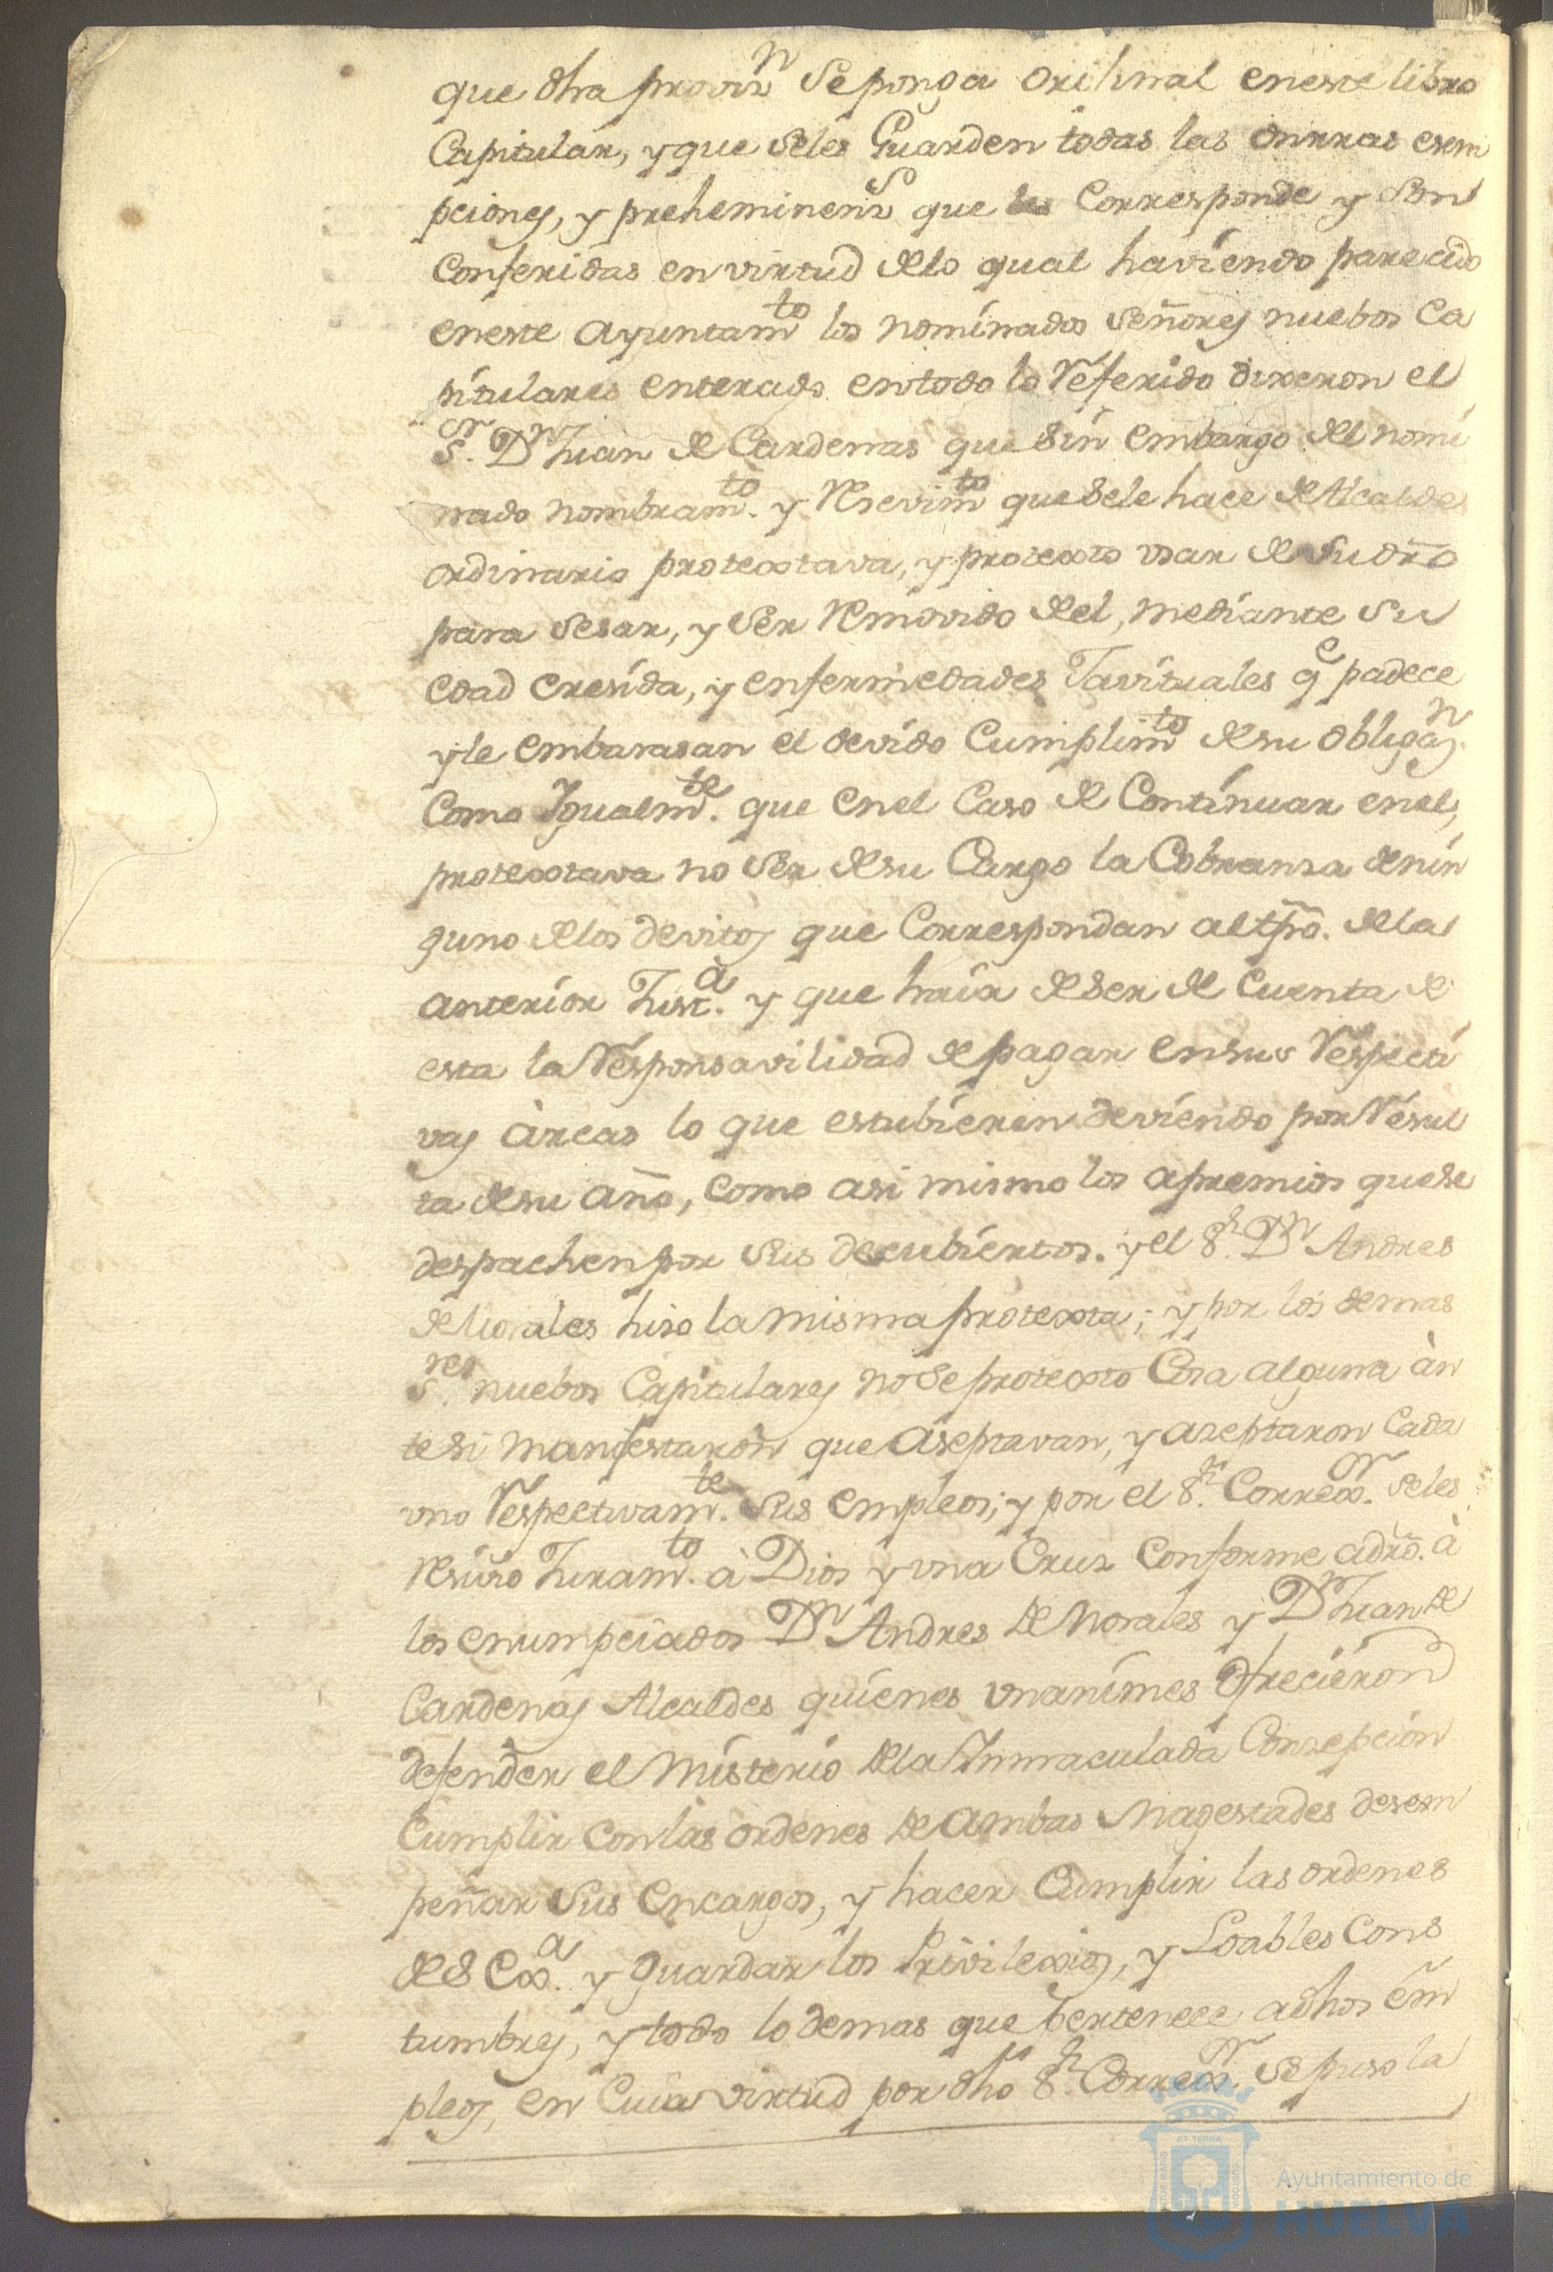 que dha provin Se ponga orihinal eneste libro
Capitular, y que Seles Guarden todas las onrras esem
pciones, y preheminens que les Corresponde y Son
Conferidas en virtud delo qual haviendo parecido
eneste Ayuntamto los nominados Señores nuebos Ca
pitulares enterado entodo lo Referido dixeron el
Sor. Dn Juan de Cardenas que Sin embargo del nomi
nado nombramto. y Resevimto que Sele hace de Alcalde
ordinario protextava, y protexto usar de Su dro
para Sesar, y Ser Removido del, mediante Su
edad Cresida, y enfermedades Javituales qe padece
y le embarasan el devido Cumplimto desu obligazn.
Como Igualmte. que enel Caso de Continuar enel,
protextava no Ser desu Cargo la Cobransa denin
guno delos devitos que Correspondan altpo. dela
anterior Justa. y que havia deSer de Cuenta de
esta la Responsavilidad depagar ensus Respecti
vas Arcas lo que estubieren deviendo por Resul
ta desu año, como asi mismo los apremios queSe
despachen por Sus descubiertos. y el Sr. Dn Andres
de Morales hiso la misma protexta; y por los demas
Sres nuebos Capitulares no Se protexto Cosa alguna an
tesi manifestaron que Aseptavan, y aseptaron Cada
uno Respectivamte. Sus empleos; y por el Sr. Correxor. Seles
Resivio Juramto. à Dios y una Cruz Conforme adro. à
los enumpciados Dn Andres de Morales y Dn Juan de
Cardenas Alcaldes quienes unanimes Ofrecieron
defender el Misterio dela Inmaculada Consepcion
Cumplir Con las ordenes de Ambas Magestades desem
peñar Sus encargos, y hacer Cumplir las ordenes
de S Exa. y guardar los Privilexios, y Loables Cons
tumbres, y todo lo demas que pertenece adhos em
pleos, en Cuia virtud por dho Sr. Correxor. Se puso la
Ayuntamiento de
HUELVA